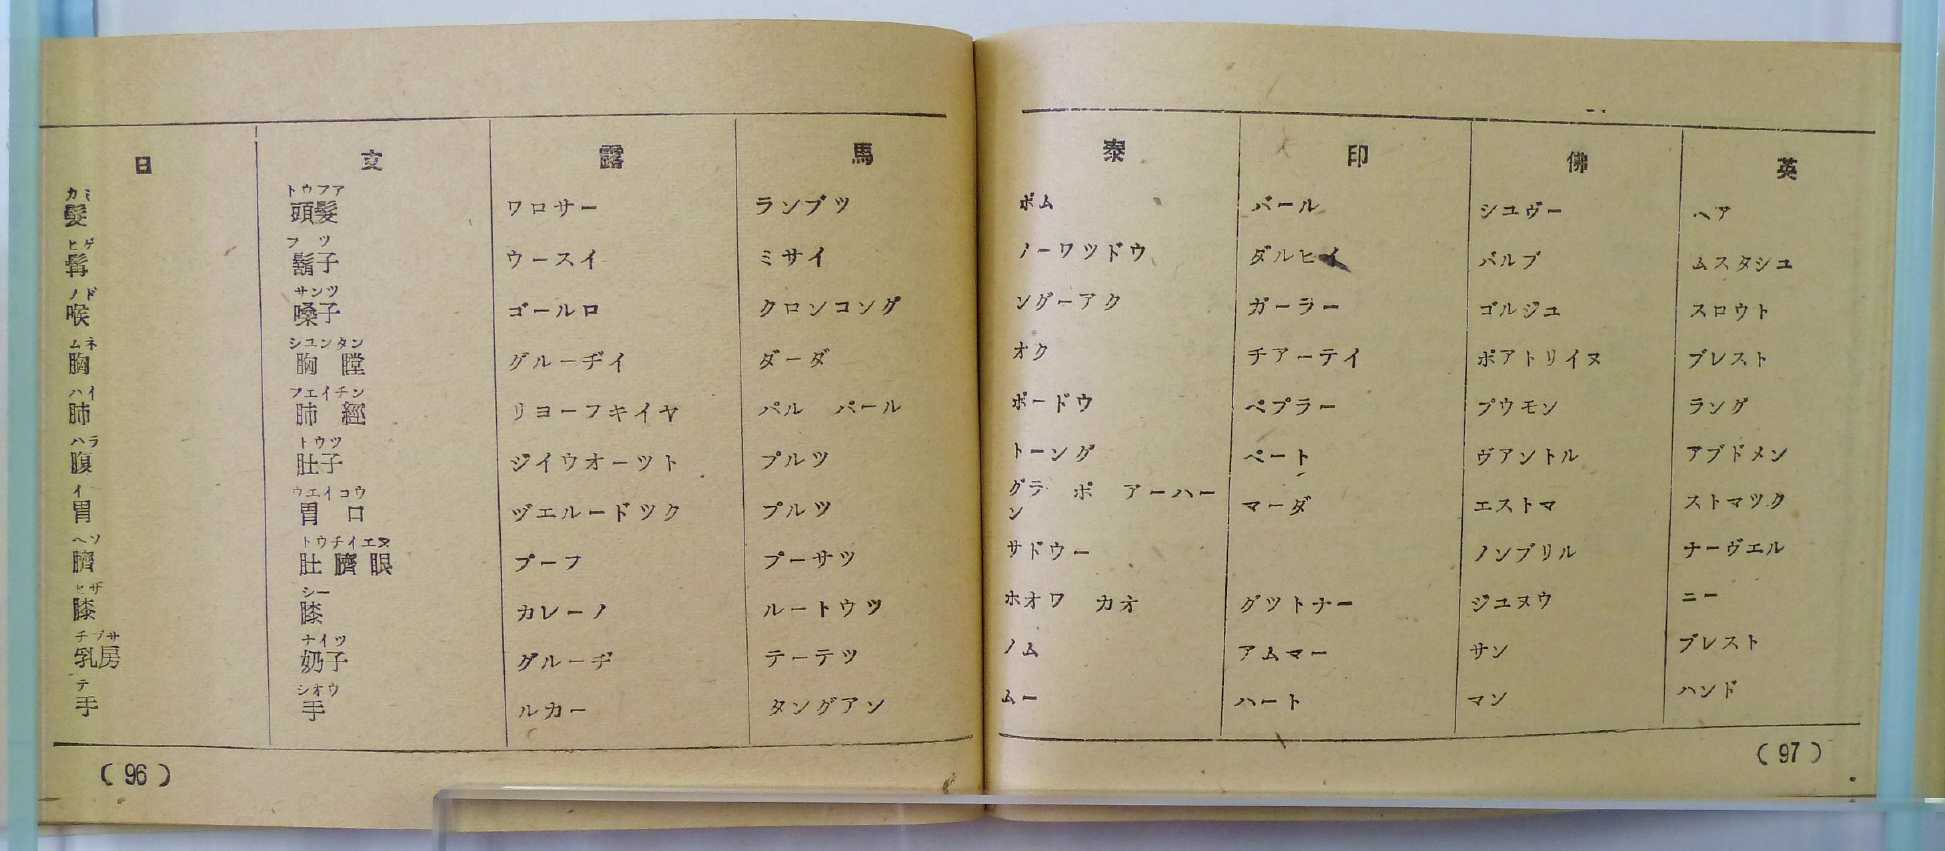 日 支 露 馬 泰 印 佛 英
カミ トウフア
髮 頭髮 ワロサー ランブツ ポム バール シユヴー ヘア
ヒゲ フツ
髯 鬍子 ウースイ ミサイ ノーワツドウ ダルヒイ バルブ ムスタシユ
ノド サンツ
喉 嗓子 ゴールロ クロンコング ンゲーアク ガーラー ゴルジユ スロウト
ムネ シユンタン
胸 胸膛 グルーヂイ ダーダ オク チアーテイ ポアトリイヌ ブレスト
ハイ フエイチン
肺 肺經 リヨーフキイヤ パル パール ポードウ ペプラー プウモン ラング
ハラ トウツ
腹 肚子 ジイウオーツト プルツ トーング ペート ヴアントル アブドメン
イ ウエイコウ
胃 胃口 ヅエルードツク プルツ グラン ポ アーハー マーダ エストマ ストマツク
ヘソ トウチイエヌ
臍 肚臍眼 プーフ プーサツ サドウー ノンブリル ナーヴエル
ヒザ シー
膝 膝 カレーノ ルートウツ ホオワ カオ グツトナー ジユヌウ ニー
チブサ ナイツ
乳房 奶子 グルーヂ テーテツ ノム アムマー サン ブレスト
テ シオウ
手 手 ルカー タングアン ムー ハート マン ハンド
(96) (97)